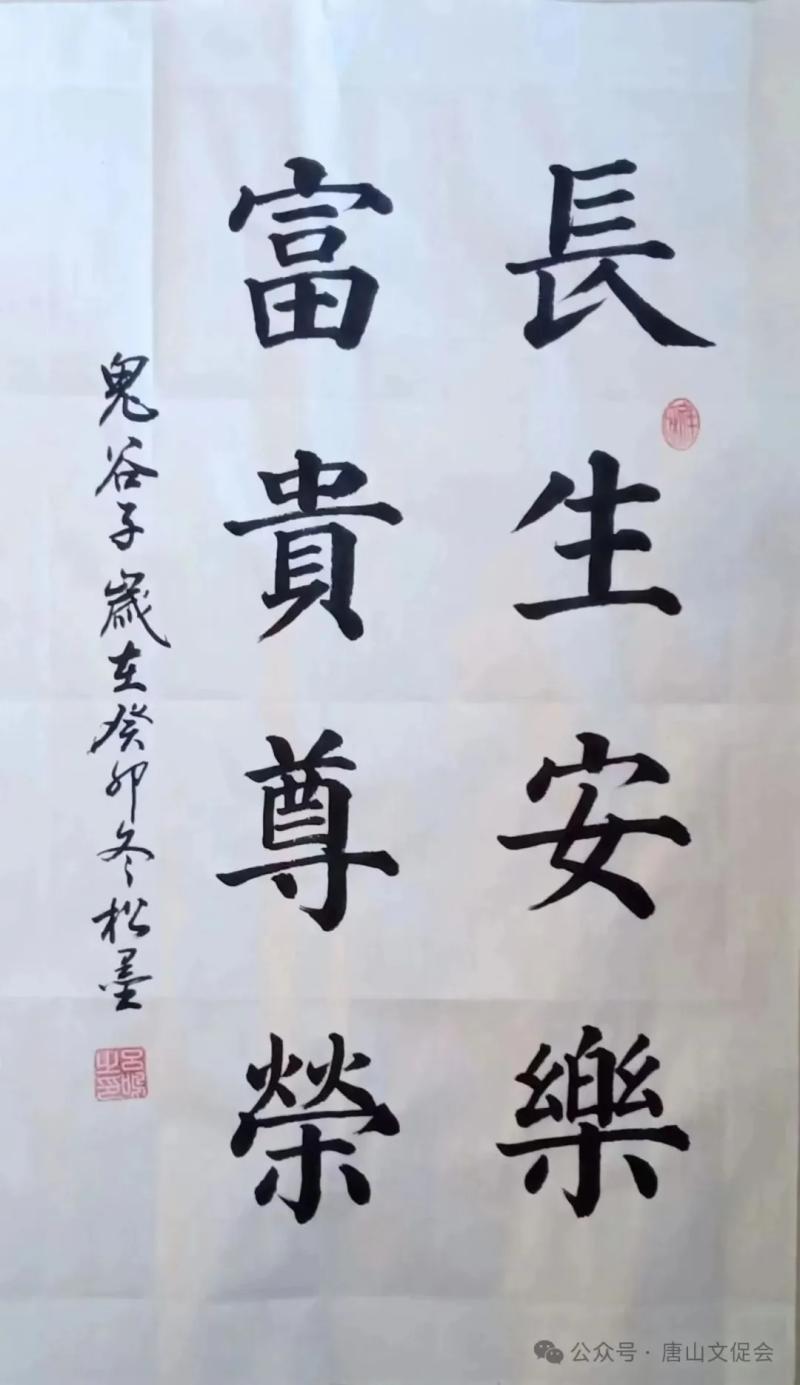 長生安樂
富貴尊榮
鬼谷子歲在癸卯冬松墨
公众号·唐山文促会